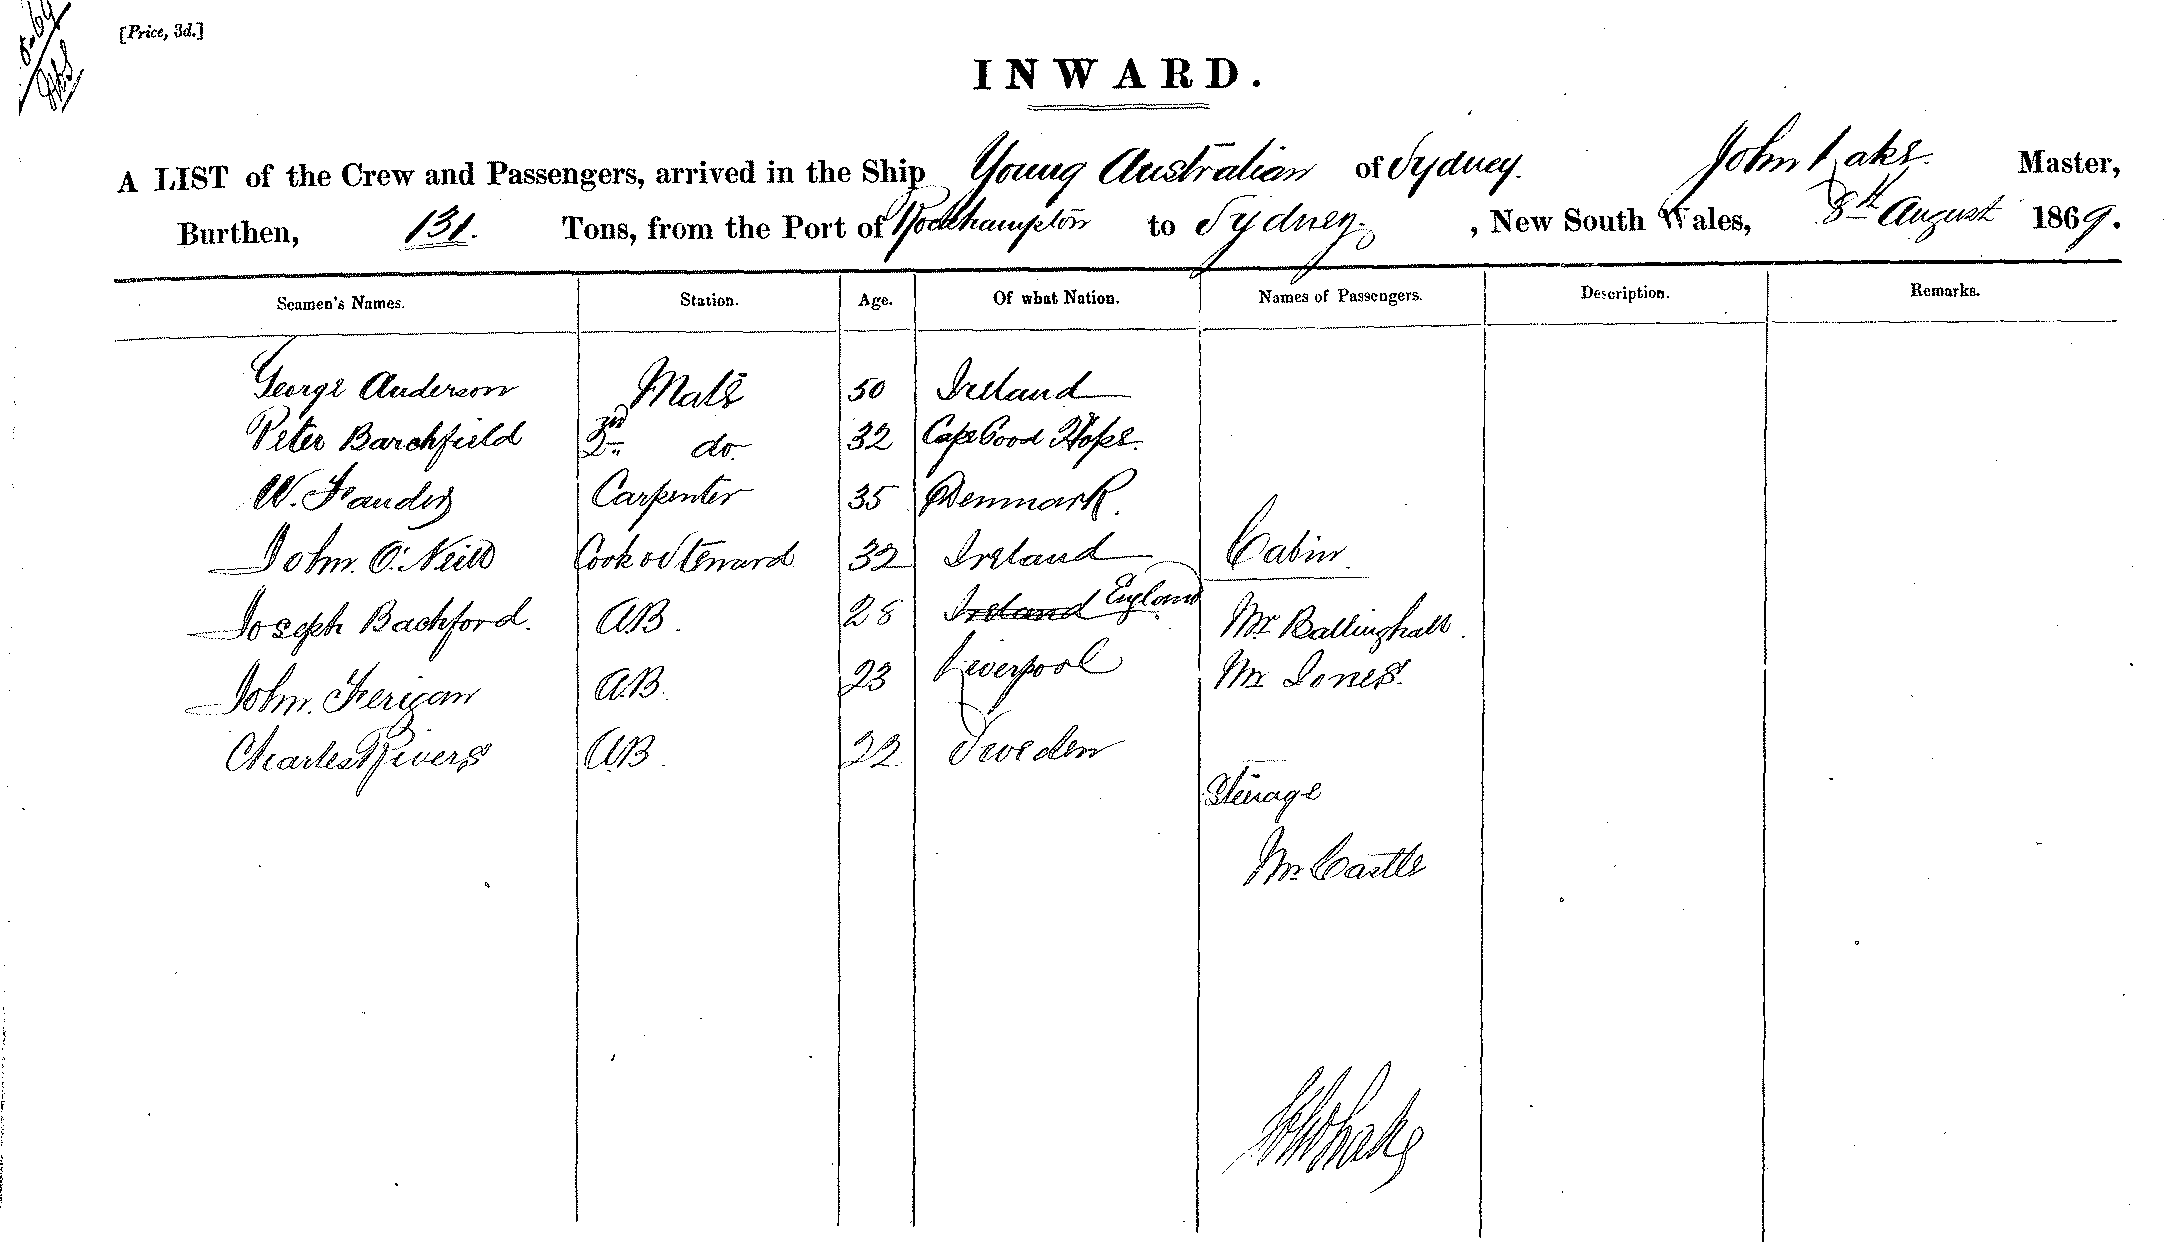 [Price, 3d.]
INWARD.
A LIST of the Crew and Passengers, arrived in the Ship Young Australian of Sydney. John Lake. Master,
Burthen, 131. Tons, from the Port of Rockhampton to Sydney, New South Wales, 8th August 1869.
Seamen's Names. Station. Age. Of what Nation. Names of Passengers. Description. Remarks.
George Anderson Mate 50 Ireland
Peter Barchfield 2nd do. 32 Cape Good Hope.
W. Carpenter 35 Denmark.
John O'Neill Cook & Steward 32 Ireland Cabin.
Joseph Bachford. AB. 28 Ireland England Mr Ballinghall.
John Ferigan AB. 23 Liverpool Mr Jones.
Charles Rivers AB. 22 Sweden
Steerage
Mr Castle